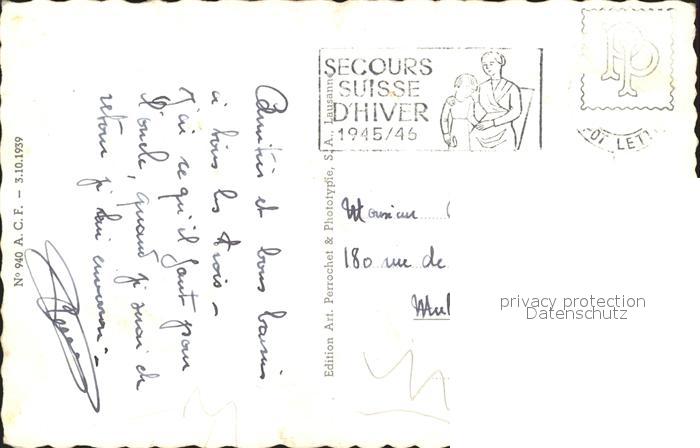 Amitiés et bons baisers
à tous les trois –
J'ai ce qu'il faut pour
l'oncle, quand je serai de
retour je lui enverrai –
N° 940 A. C. F. — 3.10.1939
Edition Art. Perrochet & Phototypie, S. A., Lausanne
SECOURS
SUISSE
D'HIVER
1945/46
PP
LET
Monsieur
180 rue de
Mul
privacy protection
Datenschutz